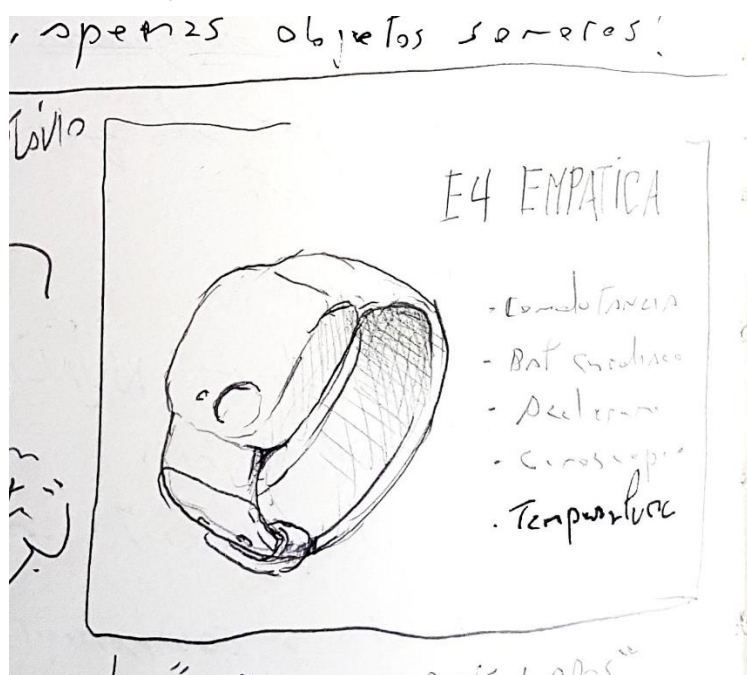 , apenas objetos sonoros!
E4 EMPATICA
- Condutancia
- Bat cardiaco
- Acelerom
- Giroscopio
. Temperatura